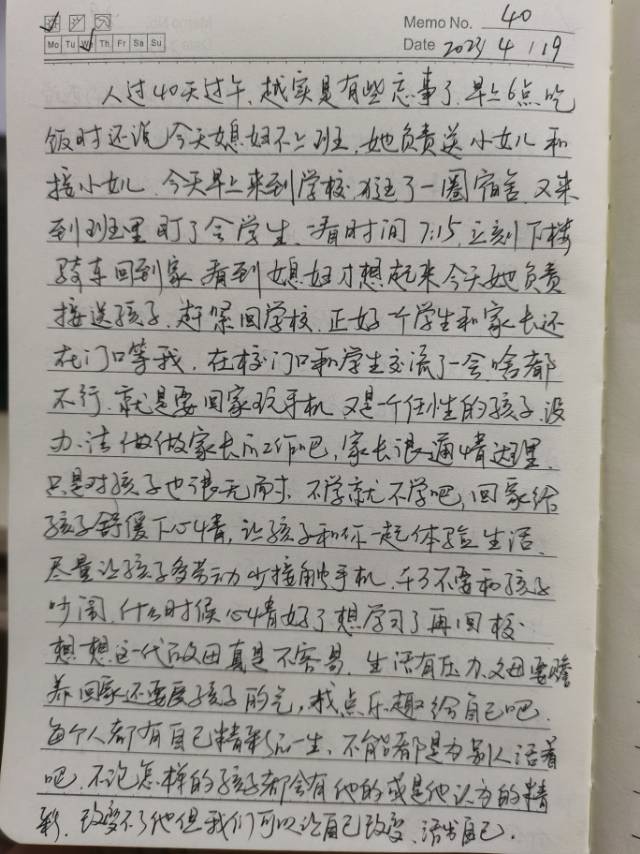 Memo No. 40
Mo Tu We Th Fr Sa Su
Date 2023 / 4 / 19
人过40天过午，越实是有些忘事了，早上6点吃
饭时还说今天媳妇不上班，她负责送小女儿和
接小女儿，今天早上来到学校，转了一圈宿舍，又来
到班里盯了会学生，一看时间7:15，立刻下楼
骑车回到家，看到媳妇才想起来今天她负责
接送孩子，赶紧回学校，正好一个学生和家长还
在门口等我，在校门口和学生交流了一会，啥都
不行，就是要回家玩手机，又是一个任性的孩子，没
办法做做家长的工作吧，家长很通情达理，
只是对孩子也很无奈，不学就不学吧，回家给
孩子舒缓下心情，让孩子和你一起体验生活，
尽量让孩子多劳动少接触手机，千万不要和孩子
吵闹，什么时候心情好了想学习了再回校。
想想这一代的父母真是不容易，生活有压力，父母要赡
养回家还要受孩子的气，找点乐趣给自己吧，
每个人都有自己精彩的一生，不能都是为别人活着
吧，不论怎样的孩子都会有他的或是他认为的精
彩，改变不了他但我们可以让自己改变，活出自己。